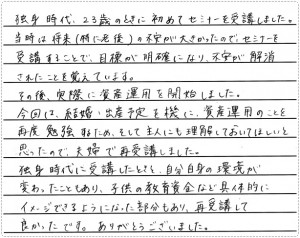 独身時代、23歳のときに初めてセミナーを受講しました。
当時は将来(特に老後)の不安が大きかったので、セミナーを
受講することで、目標が明確になり、不安が解消
されたことを覚えています。
その後、実際に資産運用を開始しました。
今回は、結婚・出産予定を機に、資産運用のことを
再度勉強するため、そして主人にも理解しておいてほしいと
思ったので、夫婦で再受講しました。
独身時代に受講したときと、自分自身の環境が
変わったこともあり、子供の教育資金など具体的に
イメージできるようになった部分もあり、再受講して
良かったです。ありがとうございました。